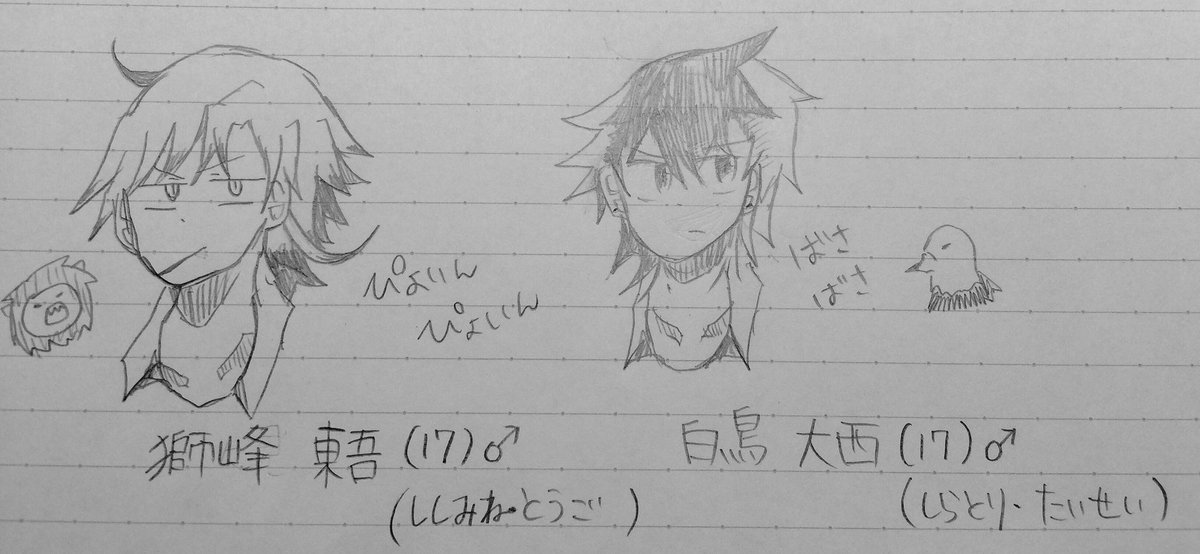 ぴょいん
ぴょいん
ばさ
ばさ
獅峰 東吾 (17)♂
(ししみね・とうご)
白鳥 大西 (17)♂
(しらとり・たいせい)